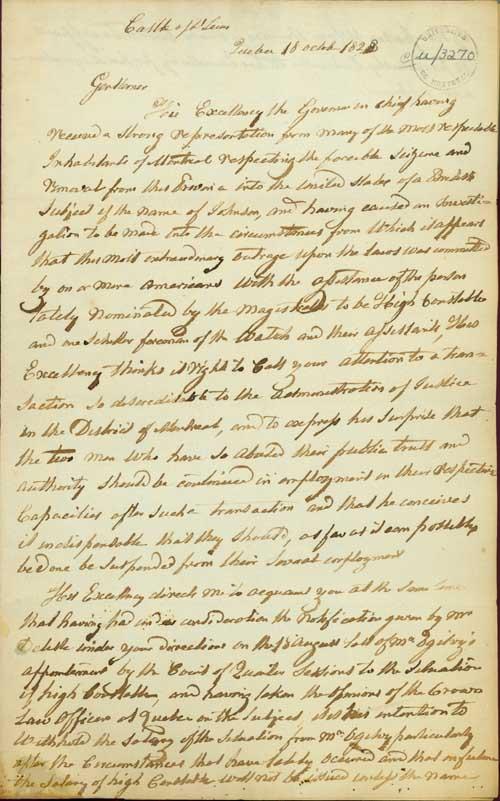 Castle of St Lewis
Quebec 18 octob 1823
M/3270
Gentlemen
His Excellency the Governor in chief having
received a strong representation from many of the most respectable
Inhabitants of Montreal respecting the forcible Seizure and
removal from this Province into the United States of a British
Subject of the name of Johnson, and having caused an Investi-
gation to be made into the circumstances from which it appears
that this most extraordinary outrage upon the Laws was committed
by on or more Americans with the assistance of the person
lately nominated by the Magistrates to be High Constable
and one Schiller foreman of the Watch and their assistants, His
Excellency thinks it right to Call your attention to a tran-
saction so discreditable to the Administration of Justice
in the District of Montreal, and to express his Surprise that
the two men who have so abused their public trust and
authority should be continued in employment in their respective
Capacities after such transaction and that he conceives
it indispensable that they should, as far as it can possibly
be done be suspended from their several employment
His Excellency direct me to acquaint you at the same time
that having had under consideration the Notification given by Mr
Delisle under your directions on the 13 August last of Mr Ogilvy's
appointment by the Court of Quarter Sessions to the Situation
of high Constable, and having taken the opinions of the Crown
Law Officers at Quebec on the Subject, it is his intention to
Withhold the Salary of the Situation from Mr Ogilvy particularly
after the Circumstances that have lately occured and that in future
the Salary of high Constable will not be issued unless the name